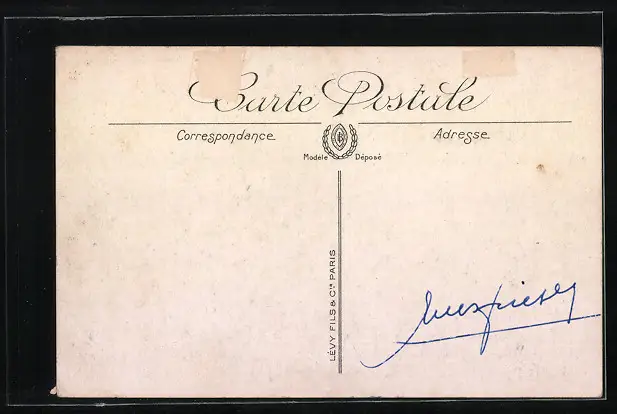 Carte Postale
Correspondance
Adresse
Modèle Déposé
LÉVY FILS & Cie PARIS